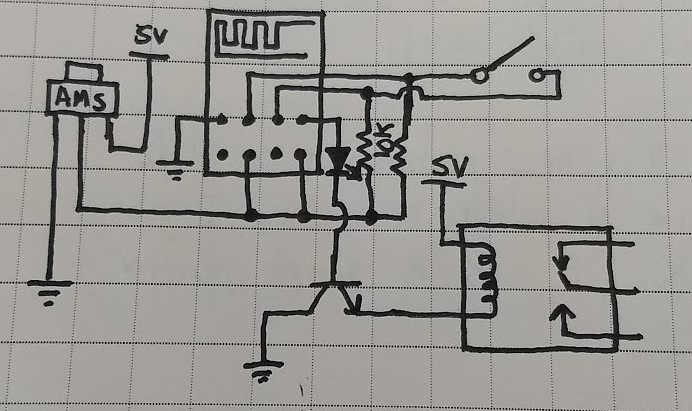 5V
AMS
10K
5V